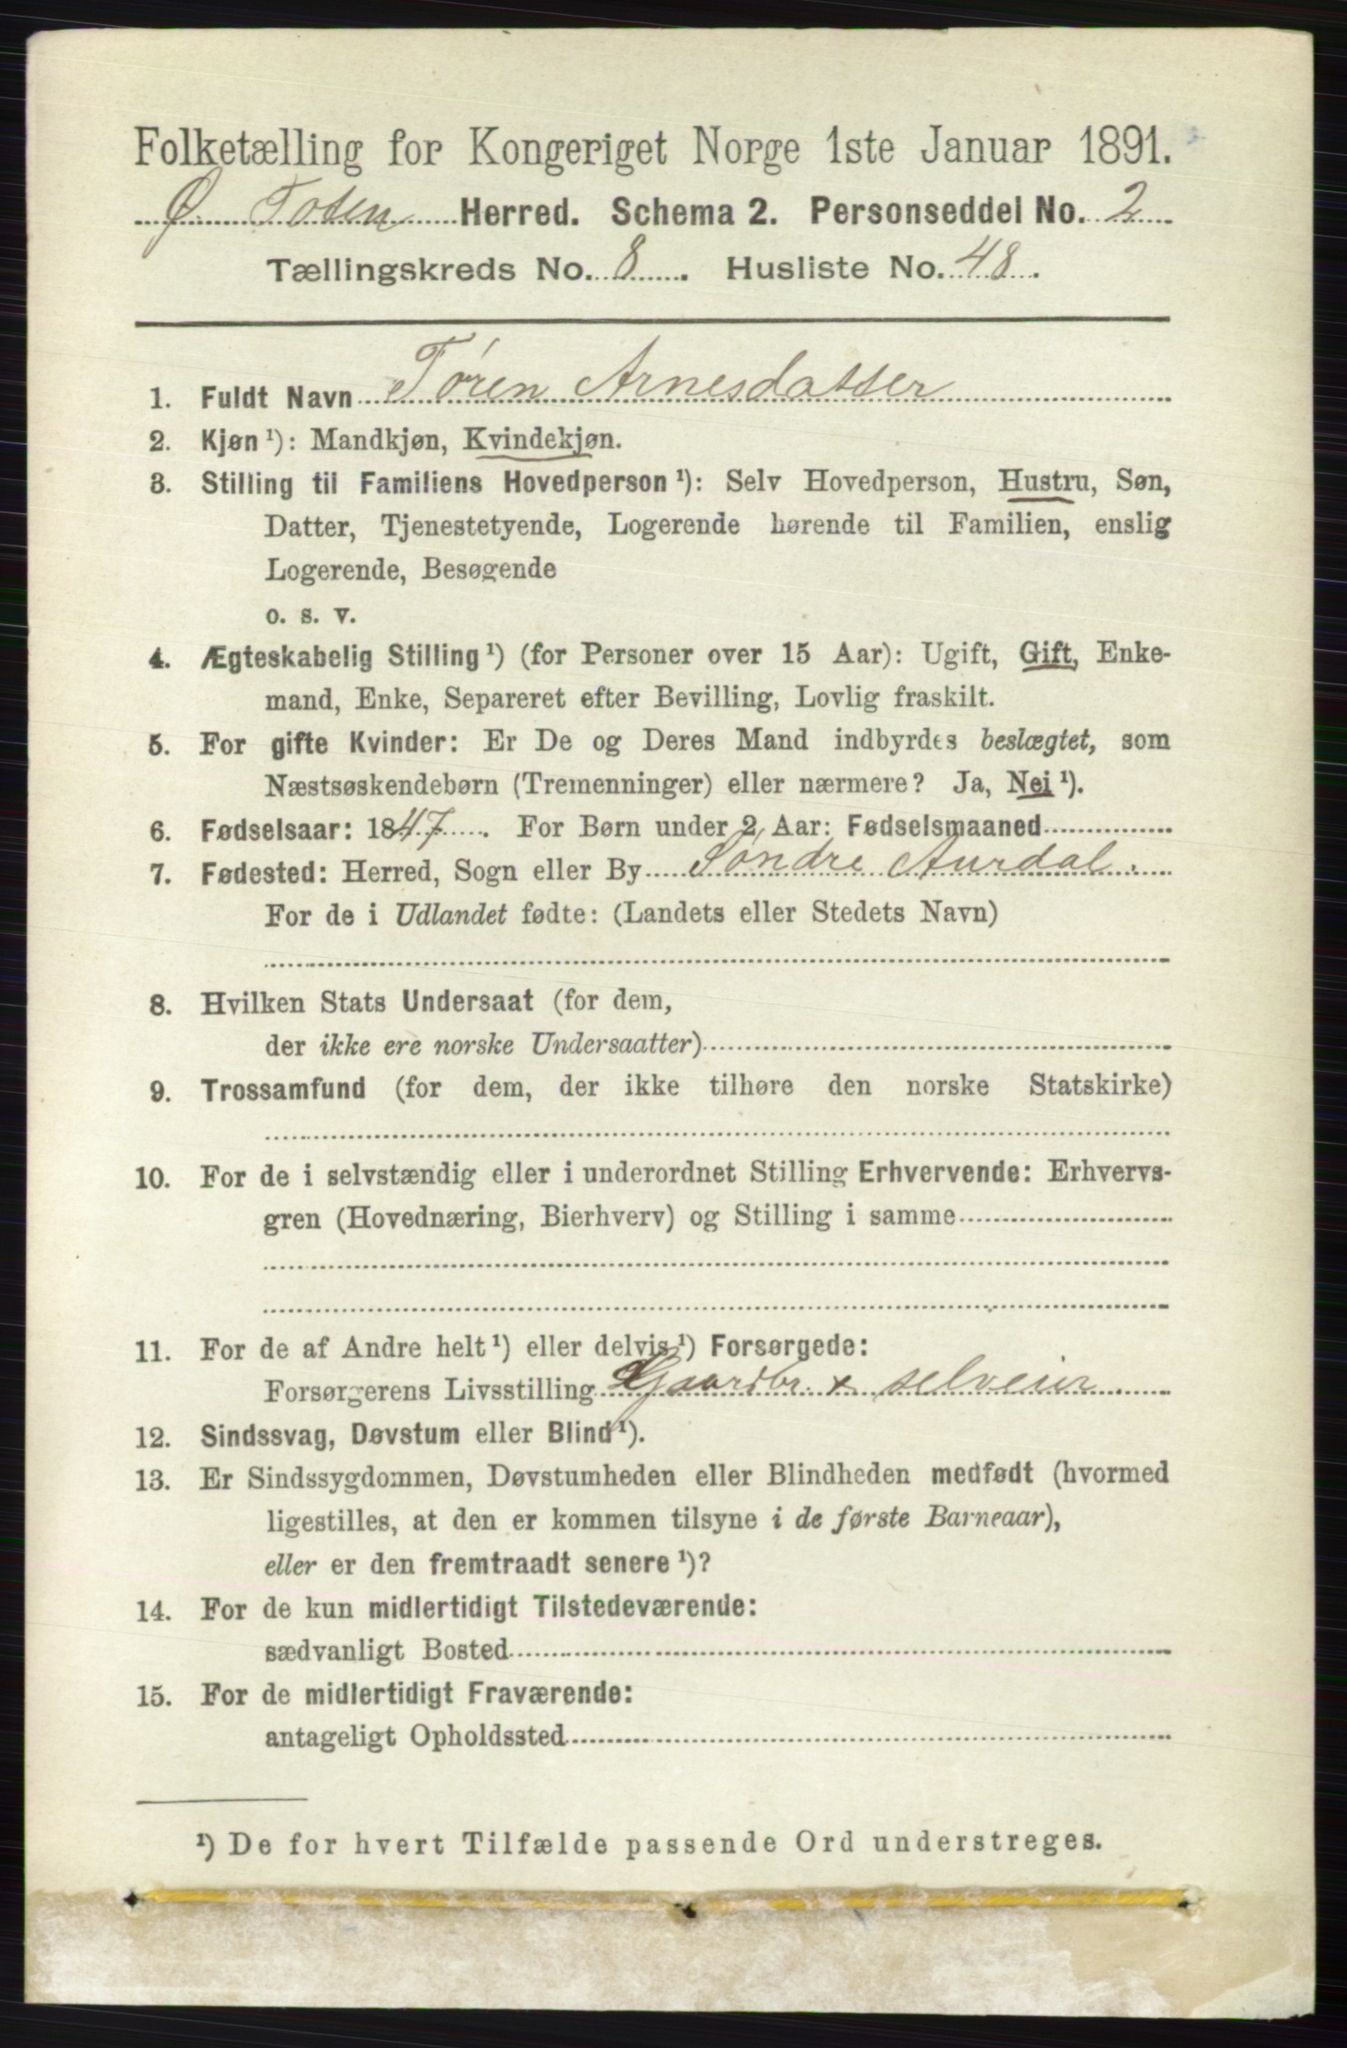 Folketælling for Kongeriget Norge 1ste Januar 1891.
Ø. Toten Herred. Schema 2. Personseddel No. 2
Tællingskreds No. 8. Husliste No. 48.
1. Fuldt Navn Tøren Arnesdatter
2. Kjøn ¹): Mandkjøn, Kvindekjøn.
3. Stilling til Familiens Hovedperson ¹): Selv Hovedperson, Hustru, Søn,
Datter, Tjenestetyende, Logerende hørende til Familien, enslig
Logerende, Besøgende
o. s. v.
4. Ægteskabelig Stilling ¹) (for Personer over 15 Aar): Ugift, Gift, Enke-
mand, Enke, Separeret efter Bevilling, Lovlig fraskilt.
5. For gifte Kvinder: Er De og Deres Mand indbyrdes beslægtet, som
Næstsøskendebørn (Tremenninger) eller nærmere? Ja, Nei ¹).
6. Fødselsaar: 1847. For Børn under 2 Aar: Fødselsmaaned
7. Fødested: Herred, Sogn eller By Søndre Aurdal.
For de i Udlandet fødte: (Landets eller Stedets Navn)
8. Hvilken Stats Undersaat (for dem,
der ikke ere norske Undersaatter)
9. Trossamfund (for dem, der ikke tilhøre den norske Statskirke)
10. For de i selvstændig eller i underordnet Stilling Erhvervende: Erhvervs-
gren (Hovednæring, Bierhverv) og Stilling i samme
11. For de af Andre helt ¹) eller delvis ¹) Forsørgede:
Forsørgerens Livsstilling Gaardbr. x selveier
12. Sindssvag, Døvstum eller Blind ¹).
13. Er Sindssygdommen, Døvstumheden eller Blindheden medfødt (hvormed
ligestilles, at den er kommen tilsyne i de første Barneaar),
eller er den fremtraadt senere ¹)?
14. For de kun midlertidigt Tilstedeværende:
sædvanligt Bosted
15. For de midlertidigt Fraværende:
antageligt Opholdssted
¹) De for hvert Tilfælde passende Ord understreges.